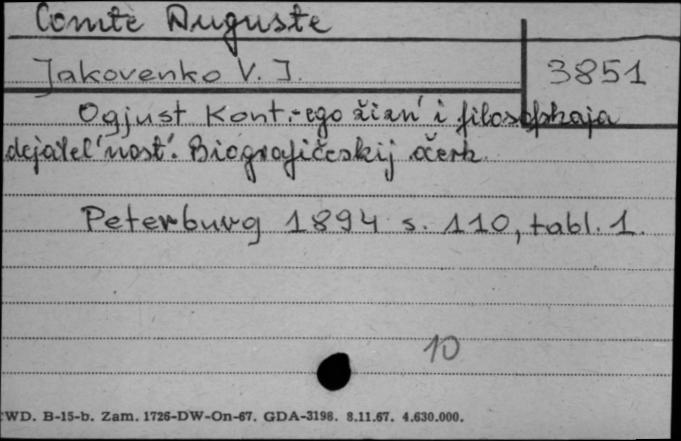 Comte Auguste
Jakovenko V. J. 3851
Ogjust Kont.-ego žizn' i filosofskaja
dejatel'nost'. Biografičeskij očerk
Peterburg 1894 s. 110, tabl. 1.
10
WD. B-15-b. Zam. 1726-DW-On-67. GDA-3198. 8.11.67. 4.630.000.